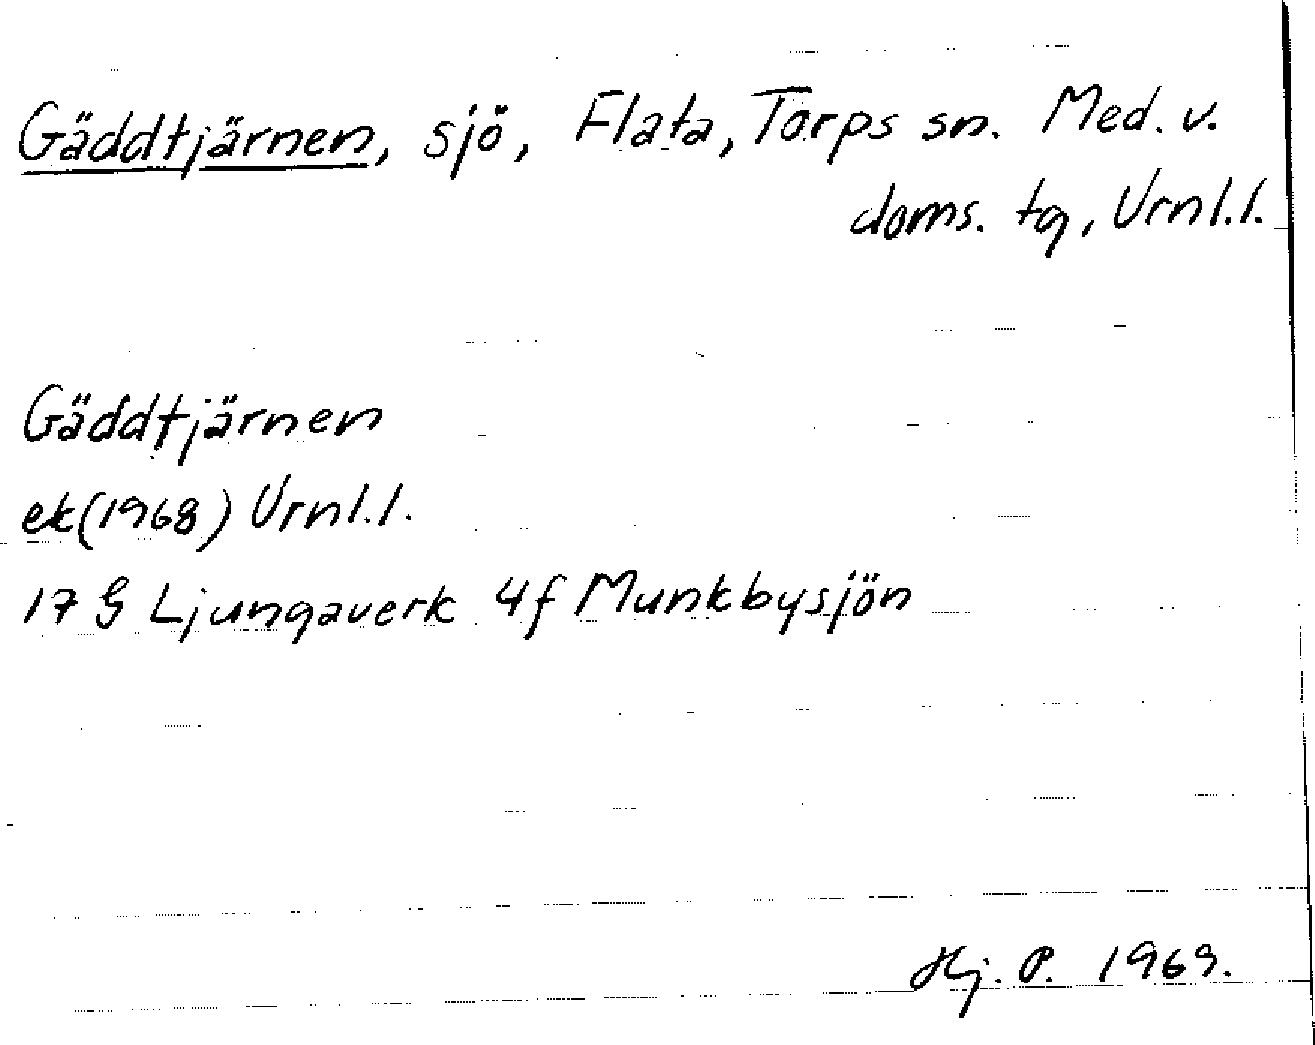 Gäddtjärnen, sjö, Flata, Torps sn. Med. v.
doms. tg, Vrnl.l.
Gäddtjärnen
ek(1968) Vrnl.l.
17 G Ljungaverk 4f Munkbysjön
Hj. P. 1969.